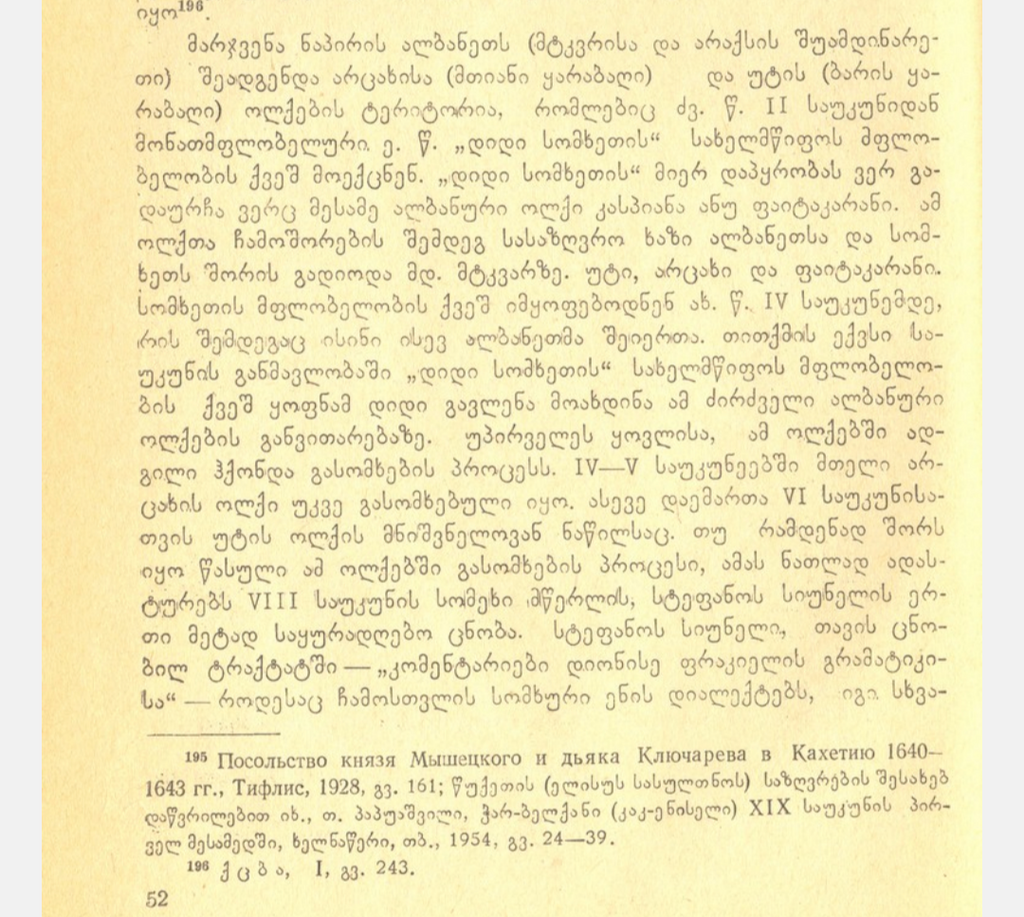 იყო¹⁹⁶.
მარჯვენა ნაპირის ალბანეთს (მტკვრისა და არაქსის შუამდინარე-
თი) შეადგენდა არცახისა (მთიანი ყარაბაღი) და უტის (ბარის ყა-
რაბაღი) ოლქების ტერიტორია, რომლებიც ძვ. წ. II საუკუნიდან
მონათმფლობელური ე. წ. „დიდი სომხეთის“ სახელმწიფოს მფლო-
ბელობის ქვეშ მოექცნენ. „დიდი სომხეთის“ მიერ დაპყრობას ვერ გა-
დაურჩა ვერც მესამე ალბანური ოლქი კასპიანა ანუ ფაიტაკარანი. ამ
ოლქთა ჩამოშორების შემდეგ სასაზღვრო ხაზი ალბანეთსა და სომ-
ხეთს შორის გადიოდა მდ. მტკვარზე. უტი, არცახი და ფაიტაკარანი.
სომხეთის მფლობელობის ქვეშ იმყოფებოდნენ ახ. წ. IV საუკუნემდე,
რის შემდეგაც ისინი ისევ ალბანეთმა შეიერთა. თითქმის ექვსი სა-
უკუნის განმავლობაში „დიდი სომხეთის“ სახელმწიფოს მფლობელო-
ბის ქვეშ ყოფნამ დიდი გავლენა მოახდინა ამ ძირძველი ალბანური
ოლქების განვითარებაზე. უპირველეს ყოვლისა, ამ ოლქებში ად-
გილი ჰქონდა გასომხების პროცესს. IV—V საუკუნეებში მთელი არ-
ცახის ოლქი უკვე გასომხებული იყო. ასევე დაემართა VI საუკუნისა-
თვის უტის ოლქის მნიშვნელოვან ნაწილსაც. თუ რამდენად შორს
იყო წასული ამ ოლქებში გასომხების პროცესი, ამას ნათლად ადას-
ტურებს VIII საუკუნის სომეხი მწერლის, სტეფანოს სიუნელის ერ-
თი მეტად საყურადღებო ცნობა. სტეფანოს სიუნელი, თავის ცნო-
ბილ ტრაქტატში — „კომენტარიები დიონისე ფრაკიელის გრამატიკი-
სა“ — როდესაც ჩამოსთვლის სომხური ენის დიალექტებს, იგი სხვა-
¹⁹⁵ Посольство князя Мышецкого и дьяка Ключарева в Кахетию 1640—
1643 гг., Тифлис, 1928, გვ. 161; წუქეთის (ელისუს სასულთნოს) საზღვრების შესახებ
დაწვრილებით იხ., თ. პაპუაშვილი, ჭარ-ბელქანი (კაკ-ენისელი) XIX საუკუნის პირ-
ველ მესამედში, ხელნაწერი, თბ., 1954, გვ. 24—39.
¹⁹⁶ ქცბა, I, გვ. 243.
52